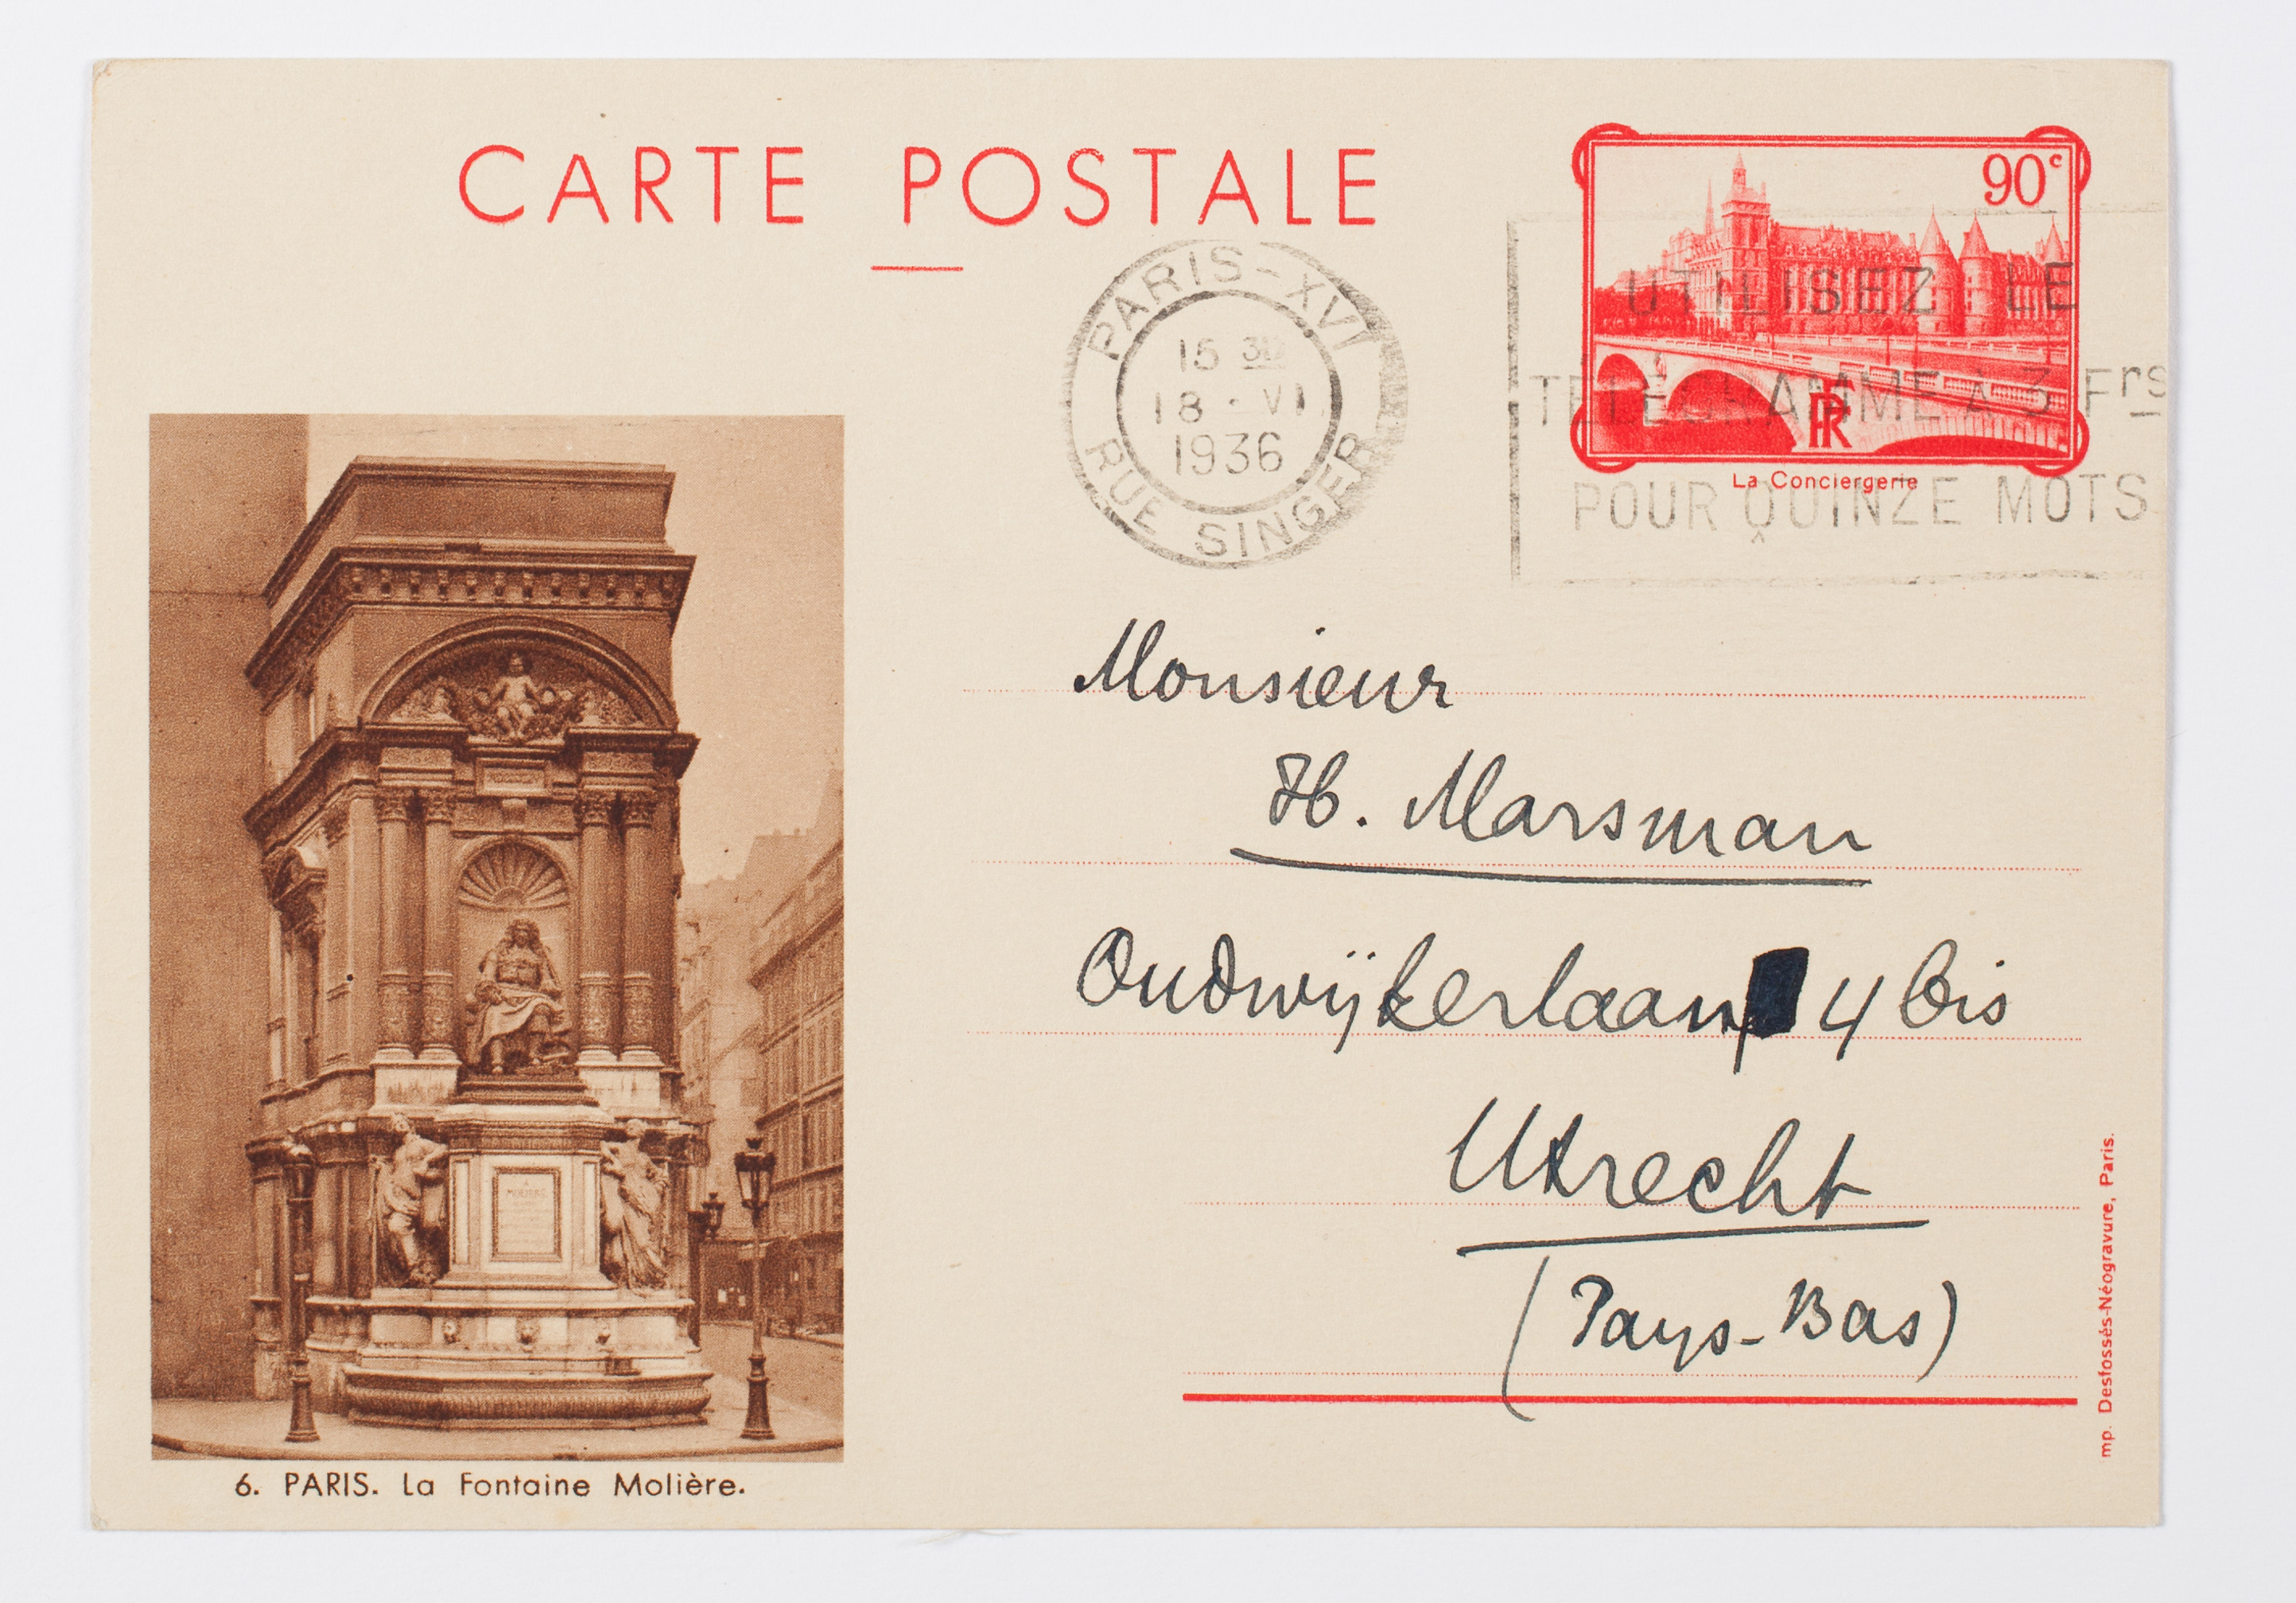 CARTE POSTALE
90c
PARIS-XVI
15 30
18 · VI
1936
RUE SINGER
UTILISEZ LE
TÉLÉGRAMME À 3 Frs
POUR QUINZE MOTS
RF
La Conciergerie
Monsieur
H. Marsman
Oudwijkerlaan 4 bis
Utrecht
(Pays-Bas)
A
MOLIÈRE
6. PARIS. La Fontaine Molière.
mp. Desfossés-Néogravure, Paris.